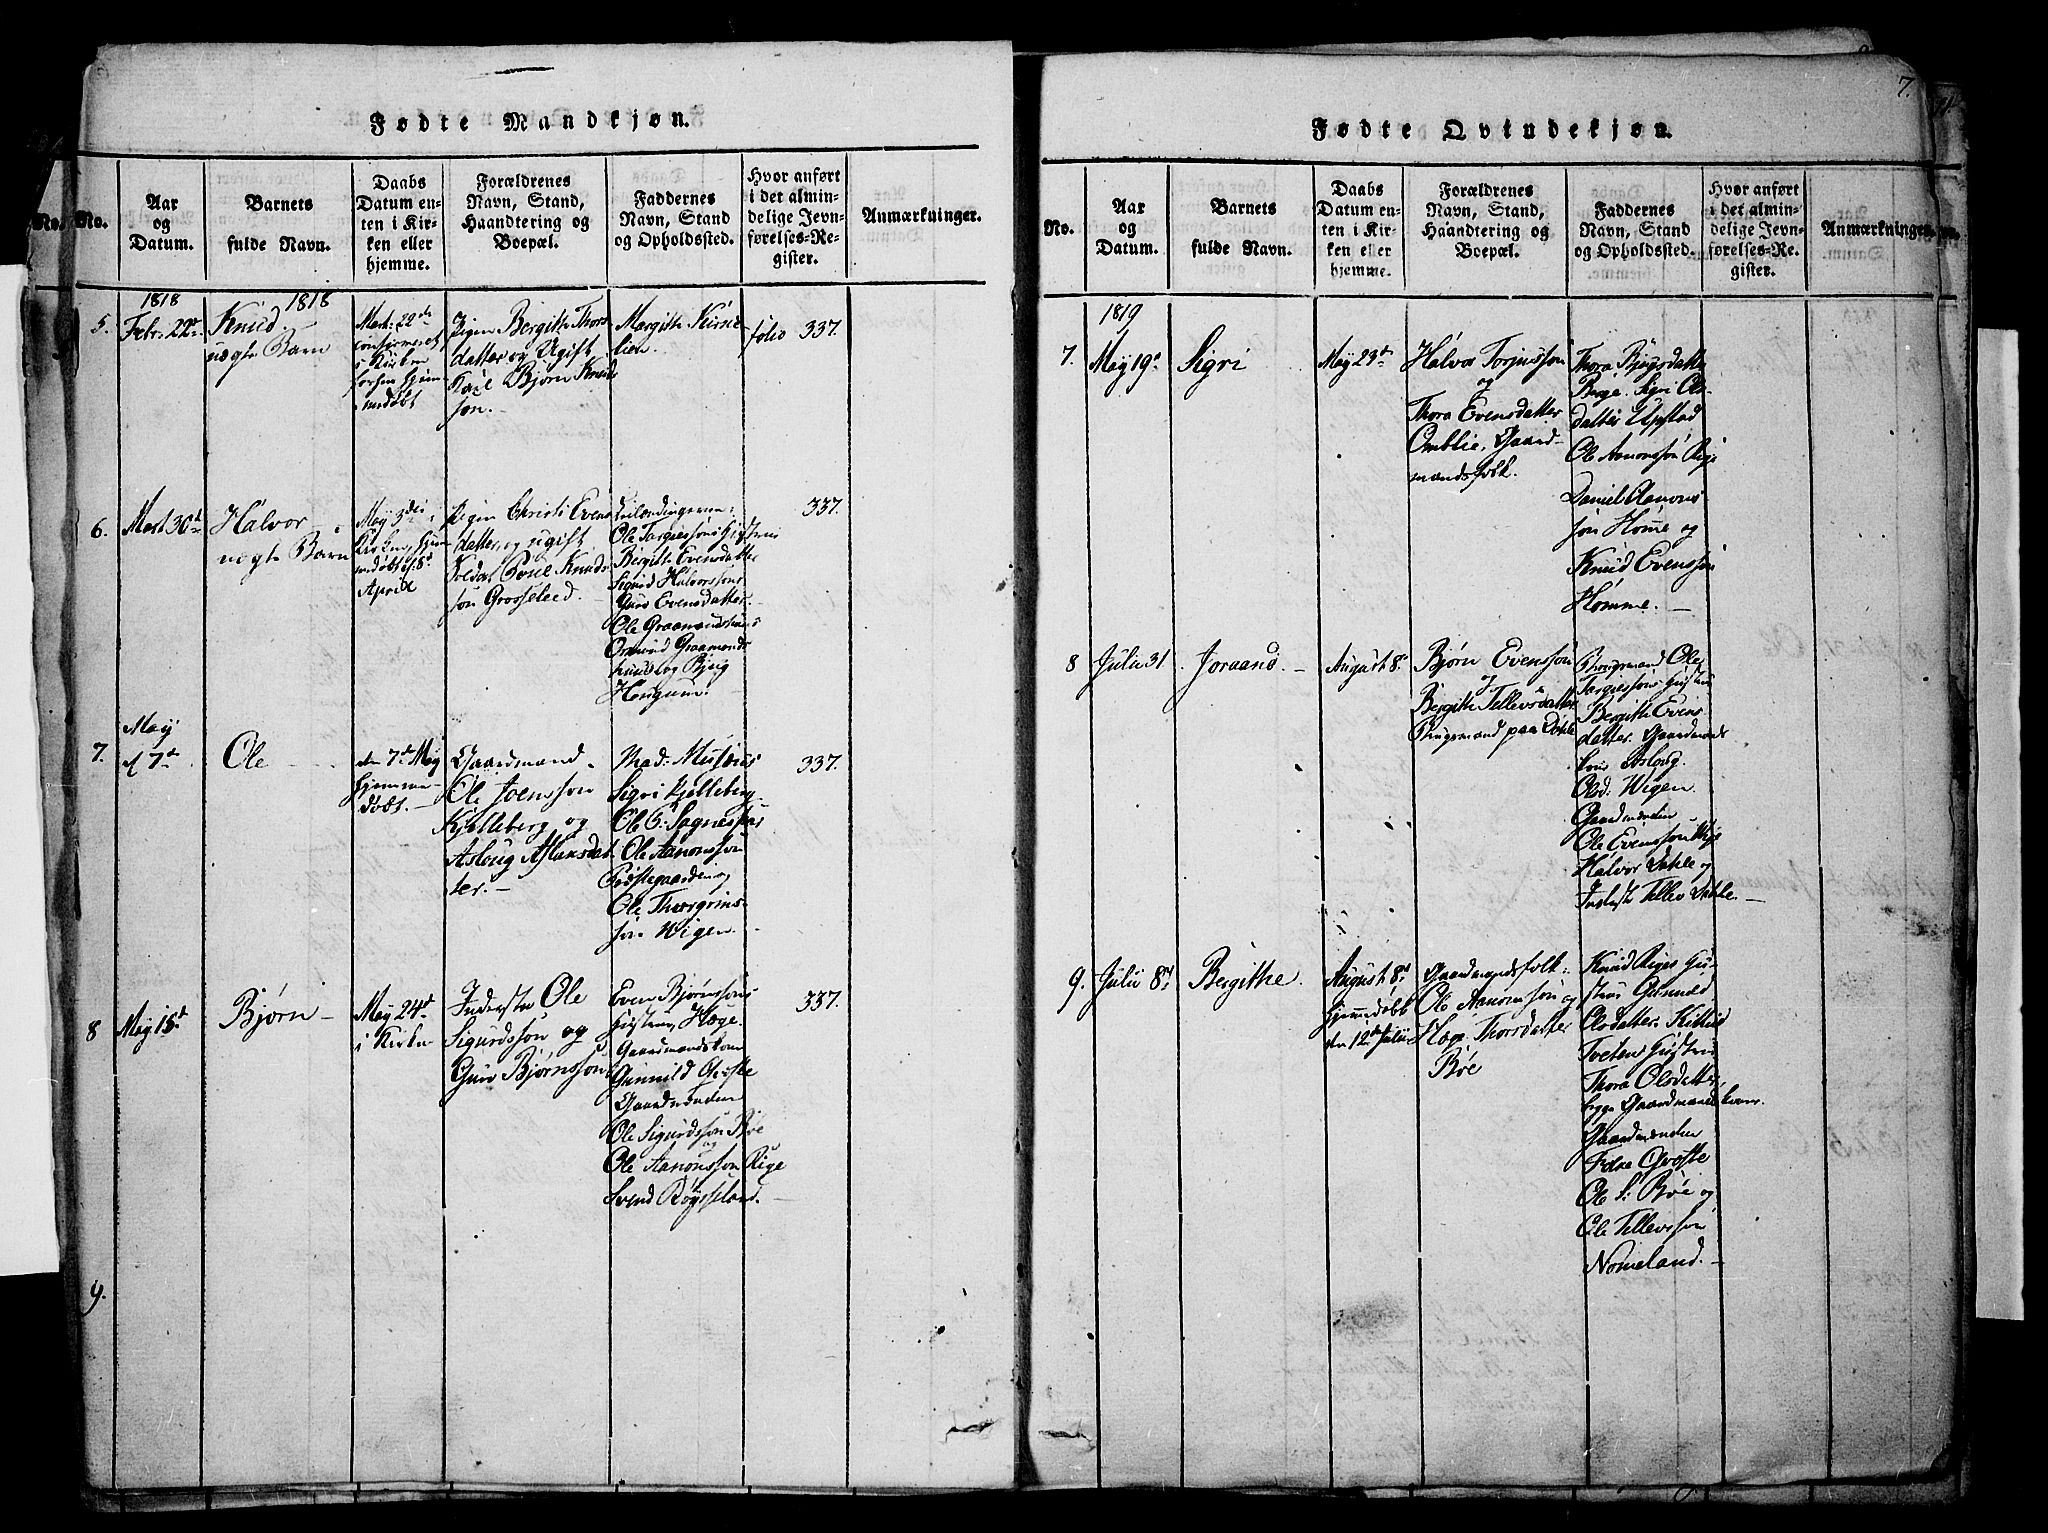 Fødte Mandkjøn.
No.
No.
Aar
og
Datum.
Barnets
fulde Navn.
Daabs
Datum en-
ten i Kir-
ken eller
hjemme.
Forældrenes
Navn, Stand,
Haandtering og
Boepæl.
Faddernes
Navn, Stand
og Opholdssted.
Hvor anført
i det almin-
delige Jevn-
førelses-Re-
gister.
Anmærkninger.
5.
1818
Febr. 22de
1818
Knud.
uægte Barn
Mart: 22de
confirmeret
i Kirken
forhen hjem-
medøbt
Pigen Bergithe Thors
datter og Ugift
Karl Bjørn Knud
søn.
Margith
folio 337.
6.
Mart 30te
Halvor
uægte Barn
May 3die i
Kirken, hjem
medøbt d: 8de
April
Pigen Christi Evens
datter, og ugift
Soldat Poul Knuds
søn Grosseleed.
Ole Targiessøns Hustrue
Bergith Evensdatter
Sigrid Halvorsdons
Guro Evensdatter
Ole Graamunds
Graamunds
og Bjug
337.
7.
May
d 7de
Ole
den 7de May
hjemme
døbt.
Gaardmand
Ole Joensson
Kjelleberg og
Asloug Aslaksdat
ter.
Mad: Musæus
Sigri Kjelleberg
Ole O:
Ole Aanonsson
Præstegaarden og
Ole Thorgrims-
søn Wigen.
337.
8
May 15de
Bjørn
May 24de
i Kirken
Inderste Ole
Sigurdssøn og
Guro Bjørnsson
Even Bjørnssøns
Hustrue, Hæge.
Gaardmandskone
Gunnild Qveste
Gaardmænden
Ole Sigurdssøn Bøe
og
Ole Aanonssøn Rige
Svend Røysseland.
337.
9.
Fødte Qvindekjøn.
7.
No.
Aar
og
Datum.
Barnets
fulde Navn.
Daabs
Datum en-
ten i Kir-
ken eller
hjemme.
Forældrenes
Navn, Stand,
Haandtering og
Boepæl.
Faddernes
Navn, Stand
og Opholdssted.
Hvor anført
i det almin-
delige Jevn-
førelses-Re-
gister.
Anmærkninger.
7.
1819
May 19de
Sigri
May 23de
Halvor Torjussøn
og
Thora Evensdatter
Omblie, Gaard-
mandsfolk.
Thora Bjugsdatter
Berge. Sigri Ols-
datter Upstad
Ole Aanonssøn Rige
Daniel Aanons
søn Homme og
Knud Evenssøn
Homme.
8
Julii 31.
Joraand.
August 8de
Bjørn Evenssøn
og
Bergith Tellevsdatter
Brugsmand paa Dahle
Brugsmand Ole
Targiessøns Hustrue
Bergith Evens
datter. Gaardmands
kone Asloug
Olsd: Wigen.
Gaardmænden
Ole Evenssøn
Halvor Dahle og
Inderste Tellev Dahle.
9.
Julii 8de
Bergithe.
August 8de
hjemmedøbt
den 12te Julii
Gaardmandsfolk:
Ole Aanonssøn og
Hæge Thorsdatter
Bøe
Knud Riges Hu-
strue Gunnild
Olsdatter.
Tveten Hustrue
Thora Olsdatter,
begge Gaardmandskoner.
Gaardmænden
Qveste
Ole S: Bøe og
Ole Tellevssøn
Nomeland.